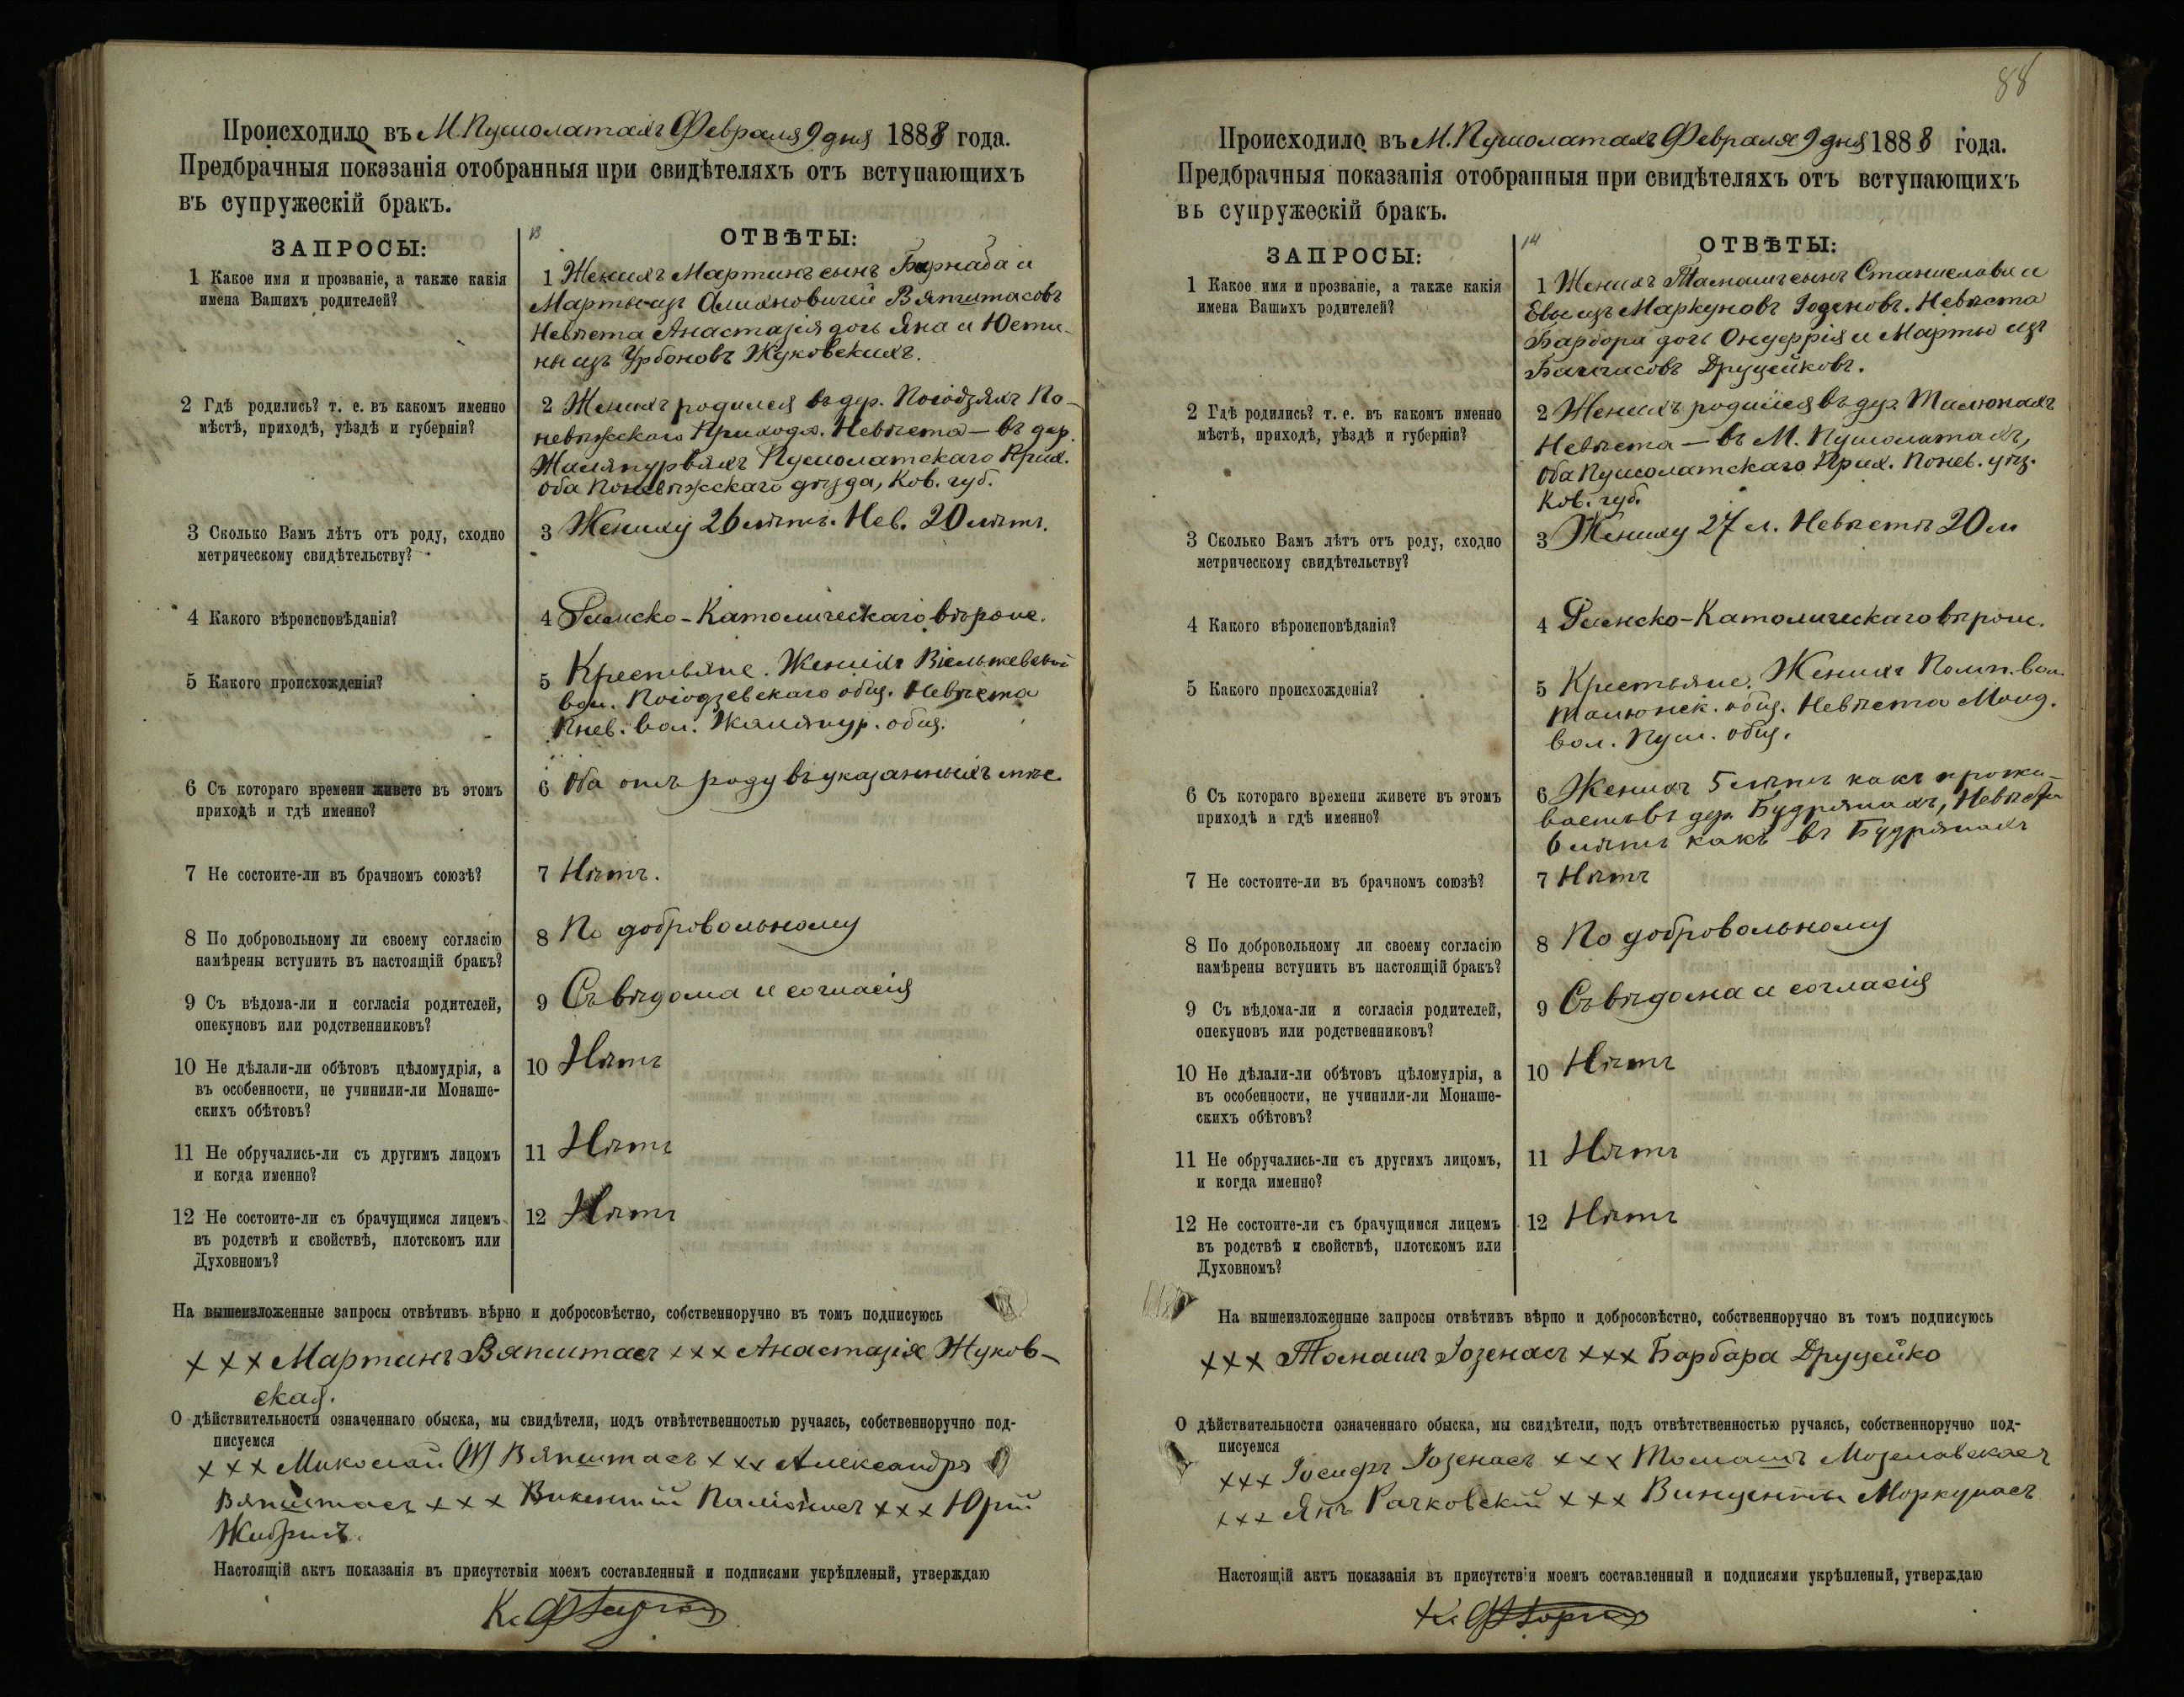 Происходило въ М. Пушолатахъ Февраля 9 дня 1888 года.
Предбрачныя показанія отобранныя при свидѣтеляхъ отъ вступающихъ
въ супружескій бракъ.
13
ЗАПРОСЫ:
ОТВѢТЫ:
1 Какое имя и прозваніе, а также какія
имена Вашихъ родителей?
1 Женихъ Мартинъ сынъ Барнаба и
Марты изъ Вяпштасовъ
Невѣста Анастазія дочь Яна и Юсти-
ны изъ Урбоновъ Жуковскихъ.
2 Гдѣ родились? т. е. въ какомъ именно
мѣстѣ, приходѣ, уѣздѣ и губерніи?
2 Женихъ родился въ дер. По-
невѣжскаго Прихода. Невѣста — въ дер.
Пушолатскаго Прих.
оба Поневѣжскаго уѣзда, Ков. губ.
3 Сколько Вамъ лѣтъ отъ роду, сходно
метрическому свидѣтельству?
3 Жениху 26 лѣтъ. Нев. 20 лѣтъ.
4 Какого вѣроисповѣданія?
4 Римско-Католическаго вѣроис.
5 Какого происхожденія?
5 Крестьяне. Женихъ
вол. общ. Невѣста
вол. общ.
6 Съ котораго времени живете въ этомъ
приходѣ и гдѣ именно?
6 Оба отъ роду въ указанныхъ мѣс.
7 Не состоите-ли въ брачномъ союзѣ?
7 Нѣтъ.
8 По добровольному ли своему согласію
намѣрены вступить въ настоящій бракъ?
8 По добровольному
9 Съ вѣдома-ли и согласія родителей,
опекуновъ или родственниковъ?
9 Съ вѣдома и согласія
10 Не дѣлали-ли обѣтовъ цѣломудрія, а
въ особенности, не учинили-ли Монаше-
скихъ обѣтовъ?
10 Нѣтъ
11 Не обручались-ли съ другимъ лицомъ
и когда именно?
11 Нѣтъ
12 Не состоите-ли съ брачущимся лицемъ
въ родствѣ и свойствѣ, плотскомъ или
Духовномъ?
12 Нѣтъ
На вышеизложенные запросы отвѣтивъ вѣрно и добросовѣстно, собственноручно въ томъ подписуюсь
××× Мартинъ Вяпштасъ ××× Анастазія Жуков-
ская.
О дѣйствительности означеннаго обыска, мы свидѣтели, подъ отвѣтственностью ручаясь, собственноручно под-
писуемся
××× Миколай Вяпштасъ ××× Александръ
Вяпштасъ ××× Викентій ××× Юрій
Настоящій актъ показанія въ присутствіи моемъ составленный и подписями укрѣпленый, утверждаю
88
Происходило въ М. Пушолатахъ Февраля 9 дня 1888 года.
Предбрачныя показанія отобранныя при свидѣтеляхъ отъ вступающихъ
въ супружескій бракъ.
14
ЗАПРОСЫ:
ОТВѢТЫ:
1 Какое имя и прозваніе, а также какія
имена Вашихъ родителей?
1 Женихъ Томашъ сынъ Станислава и
Евы изъ Маркуновъ Іозеновъ. Невѣста
Барбара дочь Онуфрія и Марты изъ
Друцейковъ.
2 Гдѣ родились? т. е. въ какомъ именно
мѣстѣ, приходѣ, уѣздѣ и губерніи?
2 Женихъ родился въ дер. Талюнахъ
Невѣста — въ М. Пушолатахъ,
Оба Пушолатскаго Прих. Понев. уѣз.
Ков. губ.
3 Сколько Вамъ лѣтъ отъ роду, сходно
метрическому свидѣтельству?
3 Жениху 27 л. Невѣстѣ 20 л
4 Какого вѣроисповѣданія?
4 Римско-Католическаго вѣроис.
5 Какого происхожденія?
5 Крестьяне. Женихъ вол.
Талюнск. общ. Невѣста
вол. Пуш. общ.
6 Съ котораго времени живете въ этомъ
приходѣ и гдѣ именно?
6 Женихъ 5 лѣтъ какъ прожи-
ваетъ въ дер. Будрянахъ, Невѣста
6 лѣтъ какъ въ Будрянахъ
7 Не состоите-ли въ брачномъ союзѣ?
7 Нѣтъ
8 По добровольному ли своему согласію
намѣрены вступить въ настоящій бракъ?
8 По добровольному
9 Съ вѣдома-ли и согласія родителей,
опекуновъ или родственниковъ?
9 Съ вѣдома и согласія
10 Не дѣлали-ли обѣтовъ цѣломудрія, а
въ особенности, не учинили-ли Монаше-
скихъ обѣтовъ?
10 Нѣтъ
11 Не обручались-ли съ другимъ лицомъ,
и когда именно?
11 Нѣтъ
12 Не состоите-ли съ брачущимся лицемъ
въ родствѣ и свойствѣ, плотскомъ или
Духовномъ?
12 Нѣтъ
На вышеизложенные запросы отвѣтивъ вѣрно и добросовѣстно, собственноручно въ томъ подписуюсь
××× Томашъ Іозенасъ ××× Барбара Друцейко
О дѣйствительности означеннаго обыска, мы свидѣтели, подъ отвѣтственностью ручаясь, собственноручно под-
писуемся
××× Іосифъ Іозенасъ ××× Томашъ
××× Янъ Рачковскій ××× Винценты Моркунасъ
Настоящій актъ показанія въ присутствіи моемъ составленный и подписями укрѣпленый, утверждаю